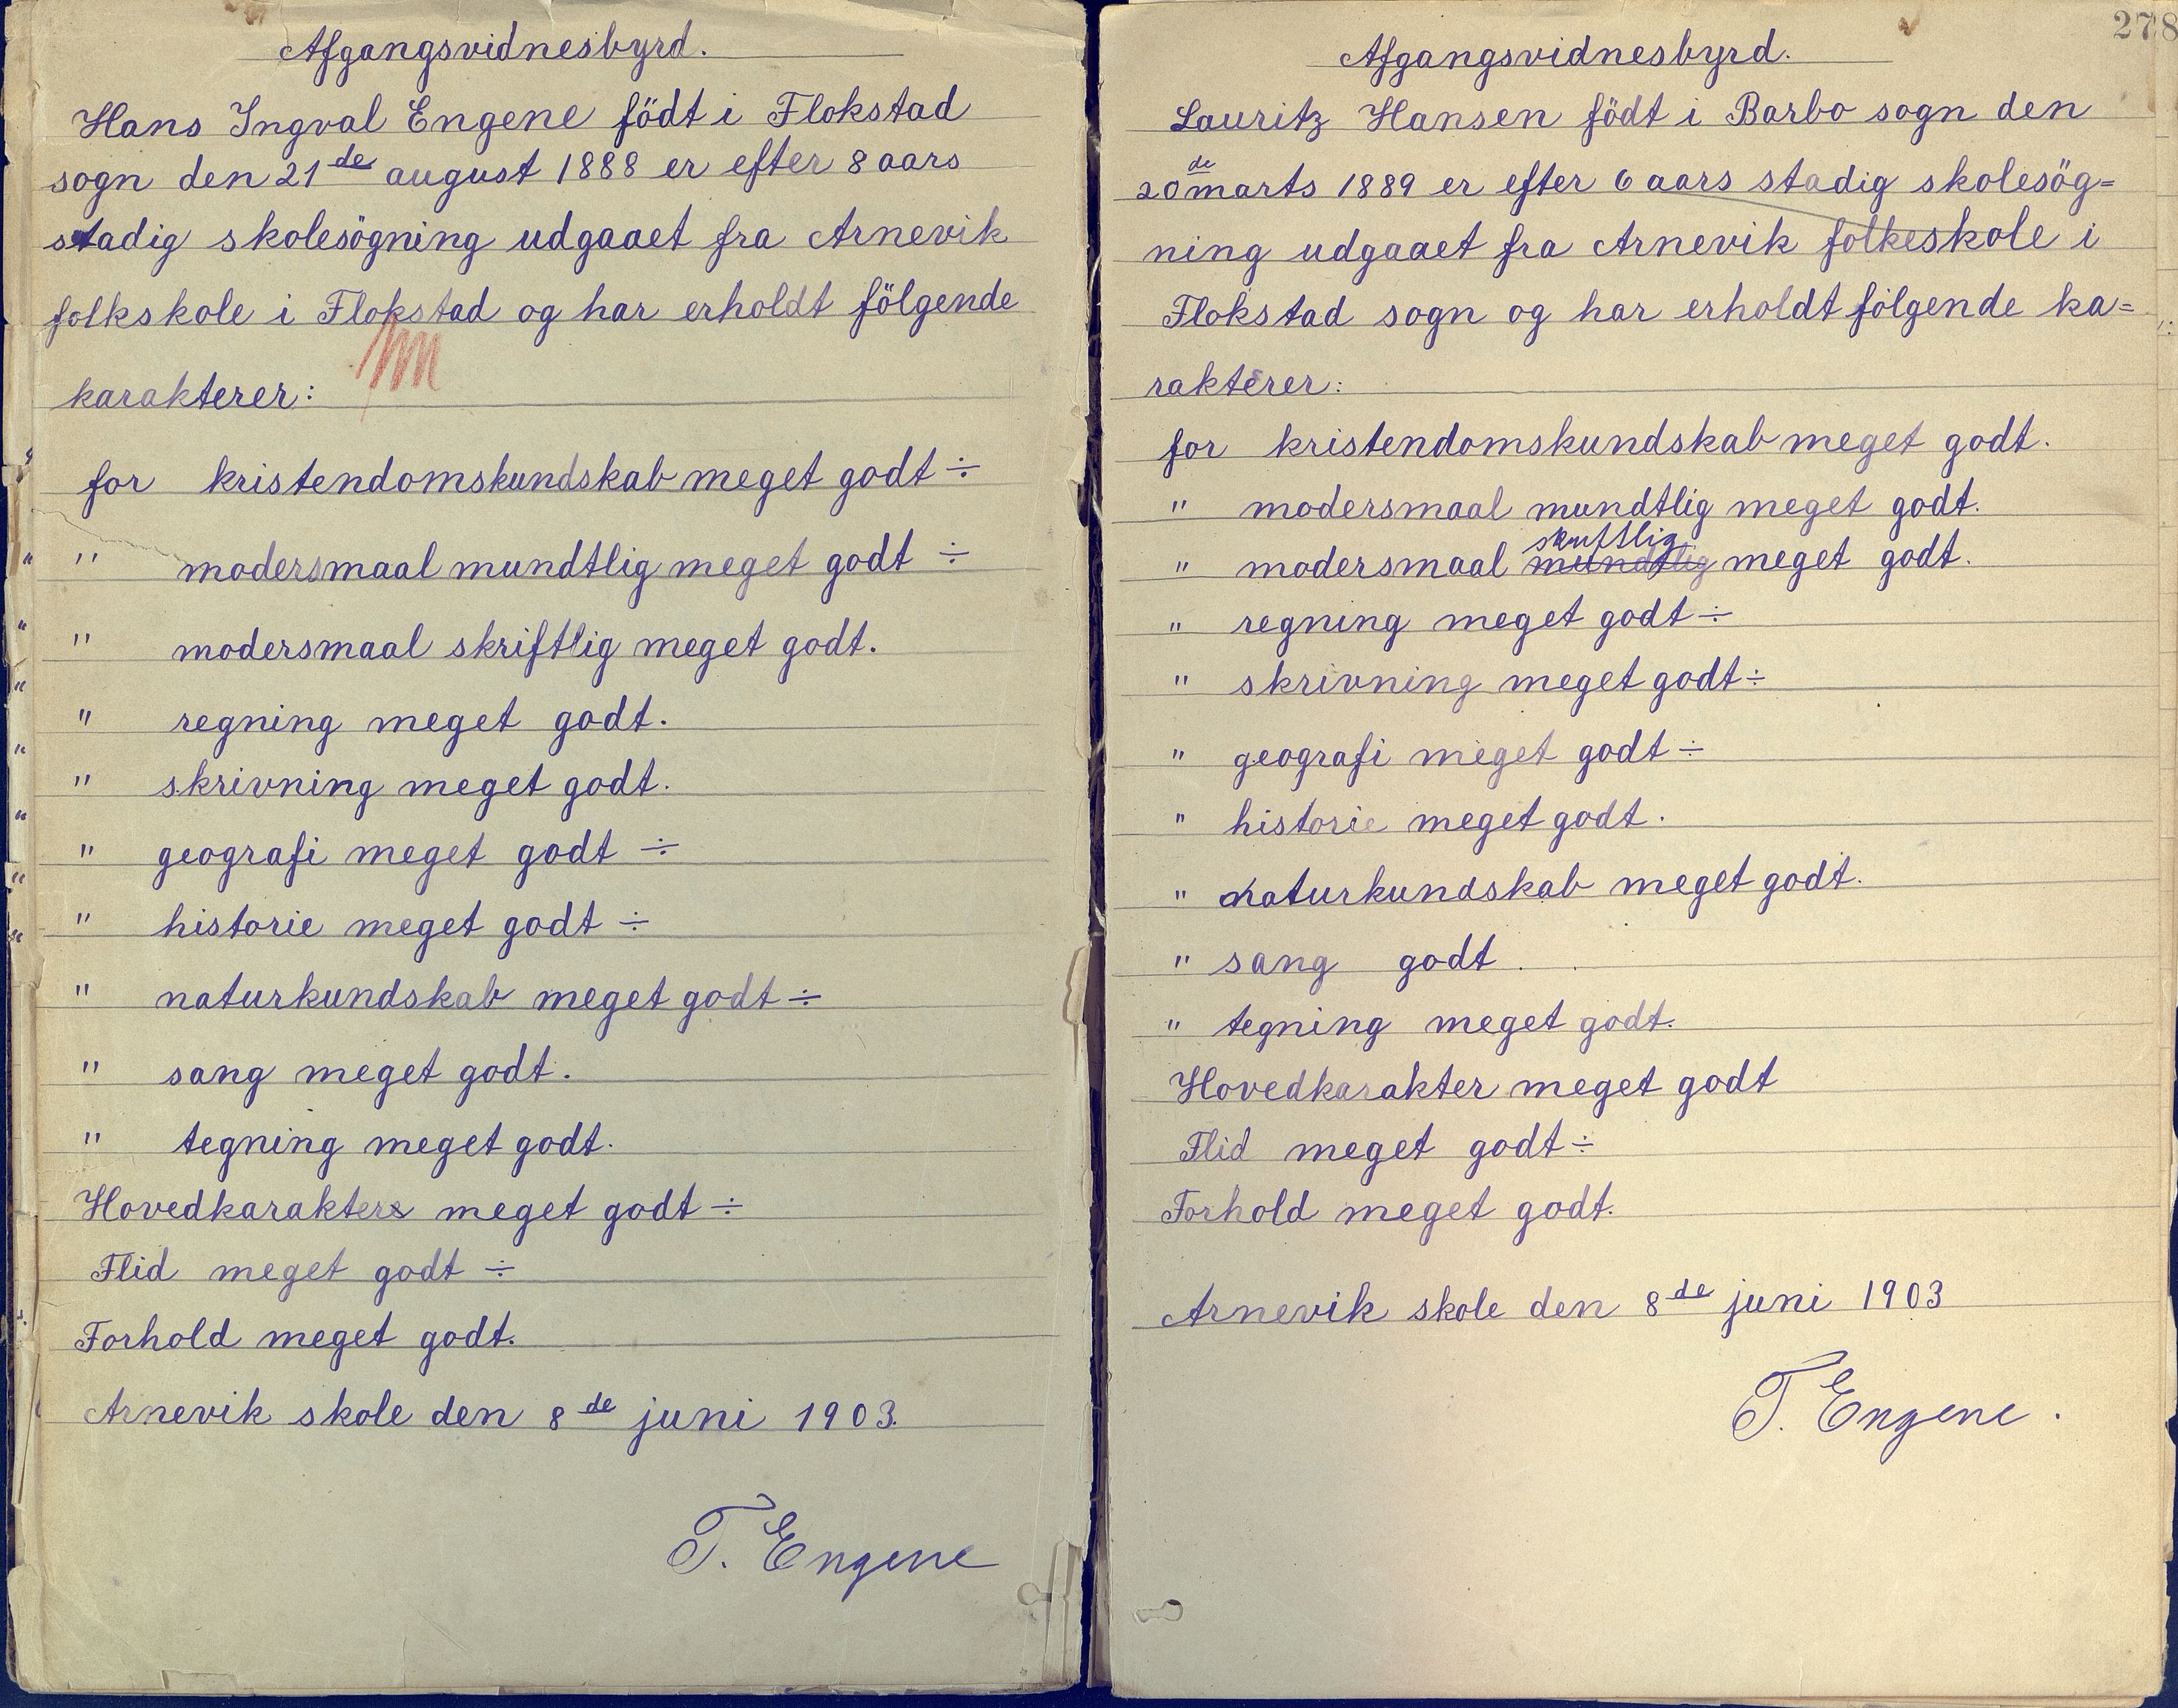 Afgangsvidnesbyrd.
Hans Ingval Engene födt i Flokstad
sogn den 21de august 1888 er efter 8 aars
stadig skolesögning udgaaet fra Arnevik
folkskole i Flokstad og har erholdt fölgende
karakterer:
for kristendomskundskab meget godt ÷
" modersmaal mundtlig meget godt ÷
" modersmaal skriftlig meget godt.
" regning meget godt.
" skrivning meget godt.
" geografi meget godt ÷
" historie meget godt ÷
" naturkundskab meget godt ÷
" sang meget godt.
" tegning meget godt.
Hovedkarakter meget godt ÷
Flid meget godt ÷
Forhold meget godt.
Arnevik skole den 8de juni 1903.
T. Engene
278
Afgangsvidnesbyrd.
Lauritz Hansen födt i Barbo sogn den
20de marts 1889 er efter 6 aars stadig skolesög=
ning udgaaet fra Arnevik folkeskole i
Flokstad sogn og har erholdt fölgende ka=
rakterer:
for kristendomskundskab meget godt.
" modersmaal mundtlig meget godt.
skriftlig
" modersmaal mundtlig meget godt.
" regning meget godt ÷
" skrivning meget godt ÷
" geografi meget godt ÷
" historie meget godt.
" naturkundskab meget godt.
" sang godt.
" tegning meget godt.
Hovedkarakter meget godt
Flid meget godt ÷
Forhold meget godt.
Arnevik skole den 8de juni 1903
T. Engene.